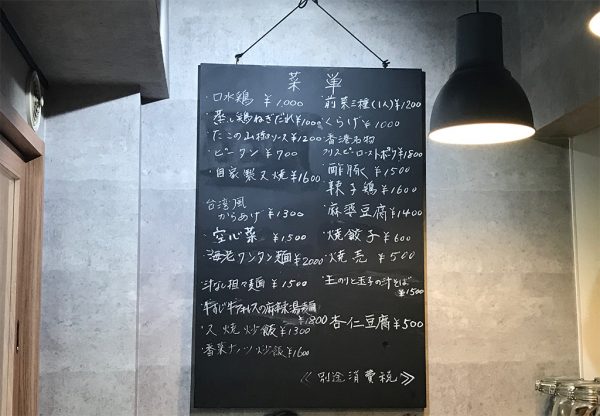 菜単
・口水鶏 ¥1,000
・蒸し鶏ねぎだれ¥1000
・たこの山椒ソース¥1200
・ピータン ¥700
・自家製叉焼¥1600
台湾風
からあげ ¥1300
・空心菜 ¥1500
海老ワンタン麺¥2000
汁なし担々麺 ¥1500
¥1800
・叉焼炒飯¥1300
・香菜ナッツ炒飯¥1600
前菜三種(1人)¥1200
くらげ ¥1000
香港名物
クリスピーローストポーク¥1800
・酢豚 ¥1500
辣子鶏 ¥1600
・麻婆豆腐¥1400
・焼餃子 ¥600
・焼売 ¥500
のりと玉子の汁そば
¥1500
杏仁豆腐¥500
≪別途消費税≫